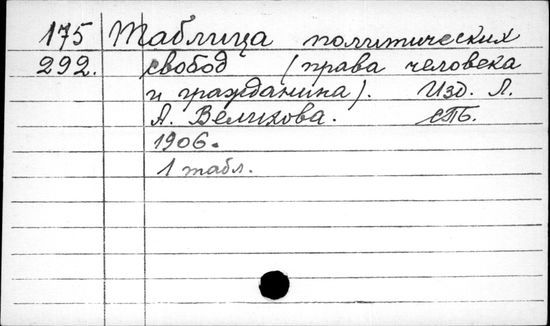 175 Таблица политических
292. свобод (права человека
и гражданина). Изд. Л.
А. Великова. СПБ.
1906.
1 табл.